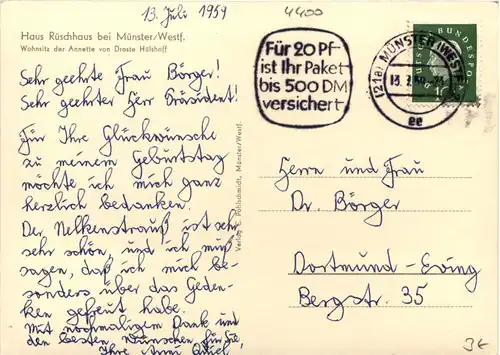 13. Juli 1959
4400
Haus Rüschhaus bei Münster/Westf.
Wohnsitz der Annette von Droste Hülshoff
Sehr geehrte Frau Börger!
Sehr geehrter Herr Präsident!
Für Ihre Glückwünsche
zu meinem Geburtstag
möchte ich mich ganz
herzlich bedanken.
Der Nelkenstrauß ist sehr
sehr schön, und ich muß
sagen, daß ich mich be-
sonders über das Geden-
ken gefreut habe.
Mit nochmaligem Dank und
den besten Wünschen für Sie,
Ihre
Verlag C. Pohlschmidt, Münster/Westf.
Für 20 Pf
ist Ihr Paket
bis 500 DM
versichert
(21a) MÜNSTER (WESTF)
ee
BUNDESPOST
Herrn und Frau
Dr. Börger
Dortmund-Eving
Bergstr. 35
3€